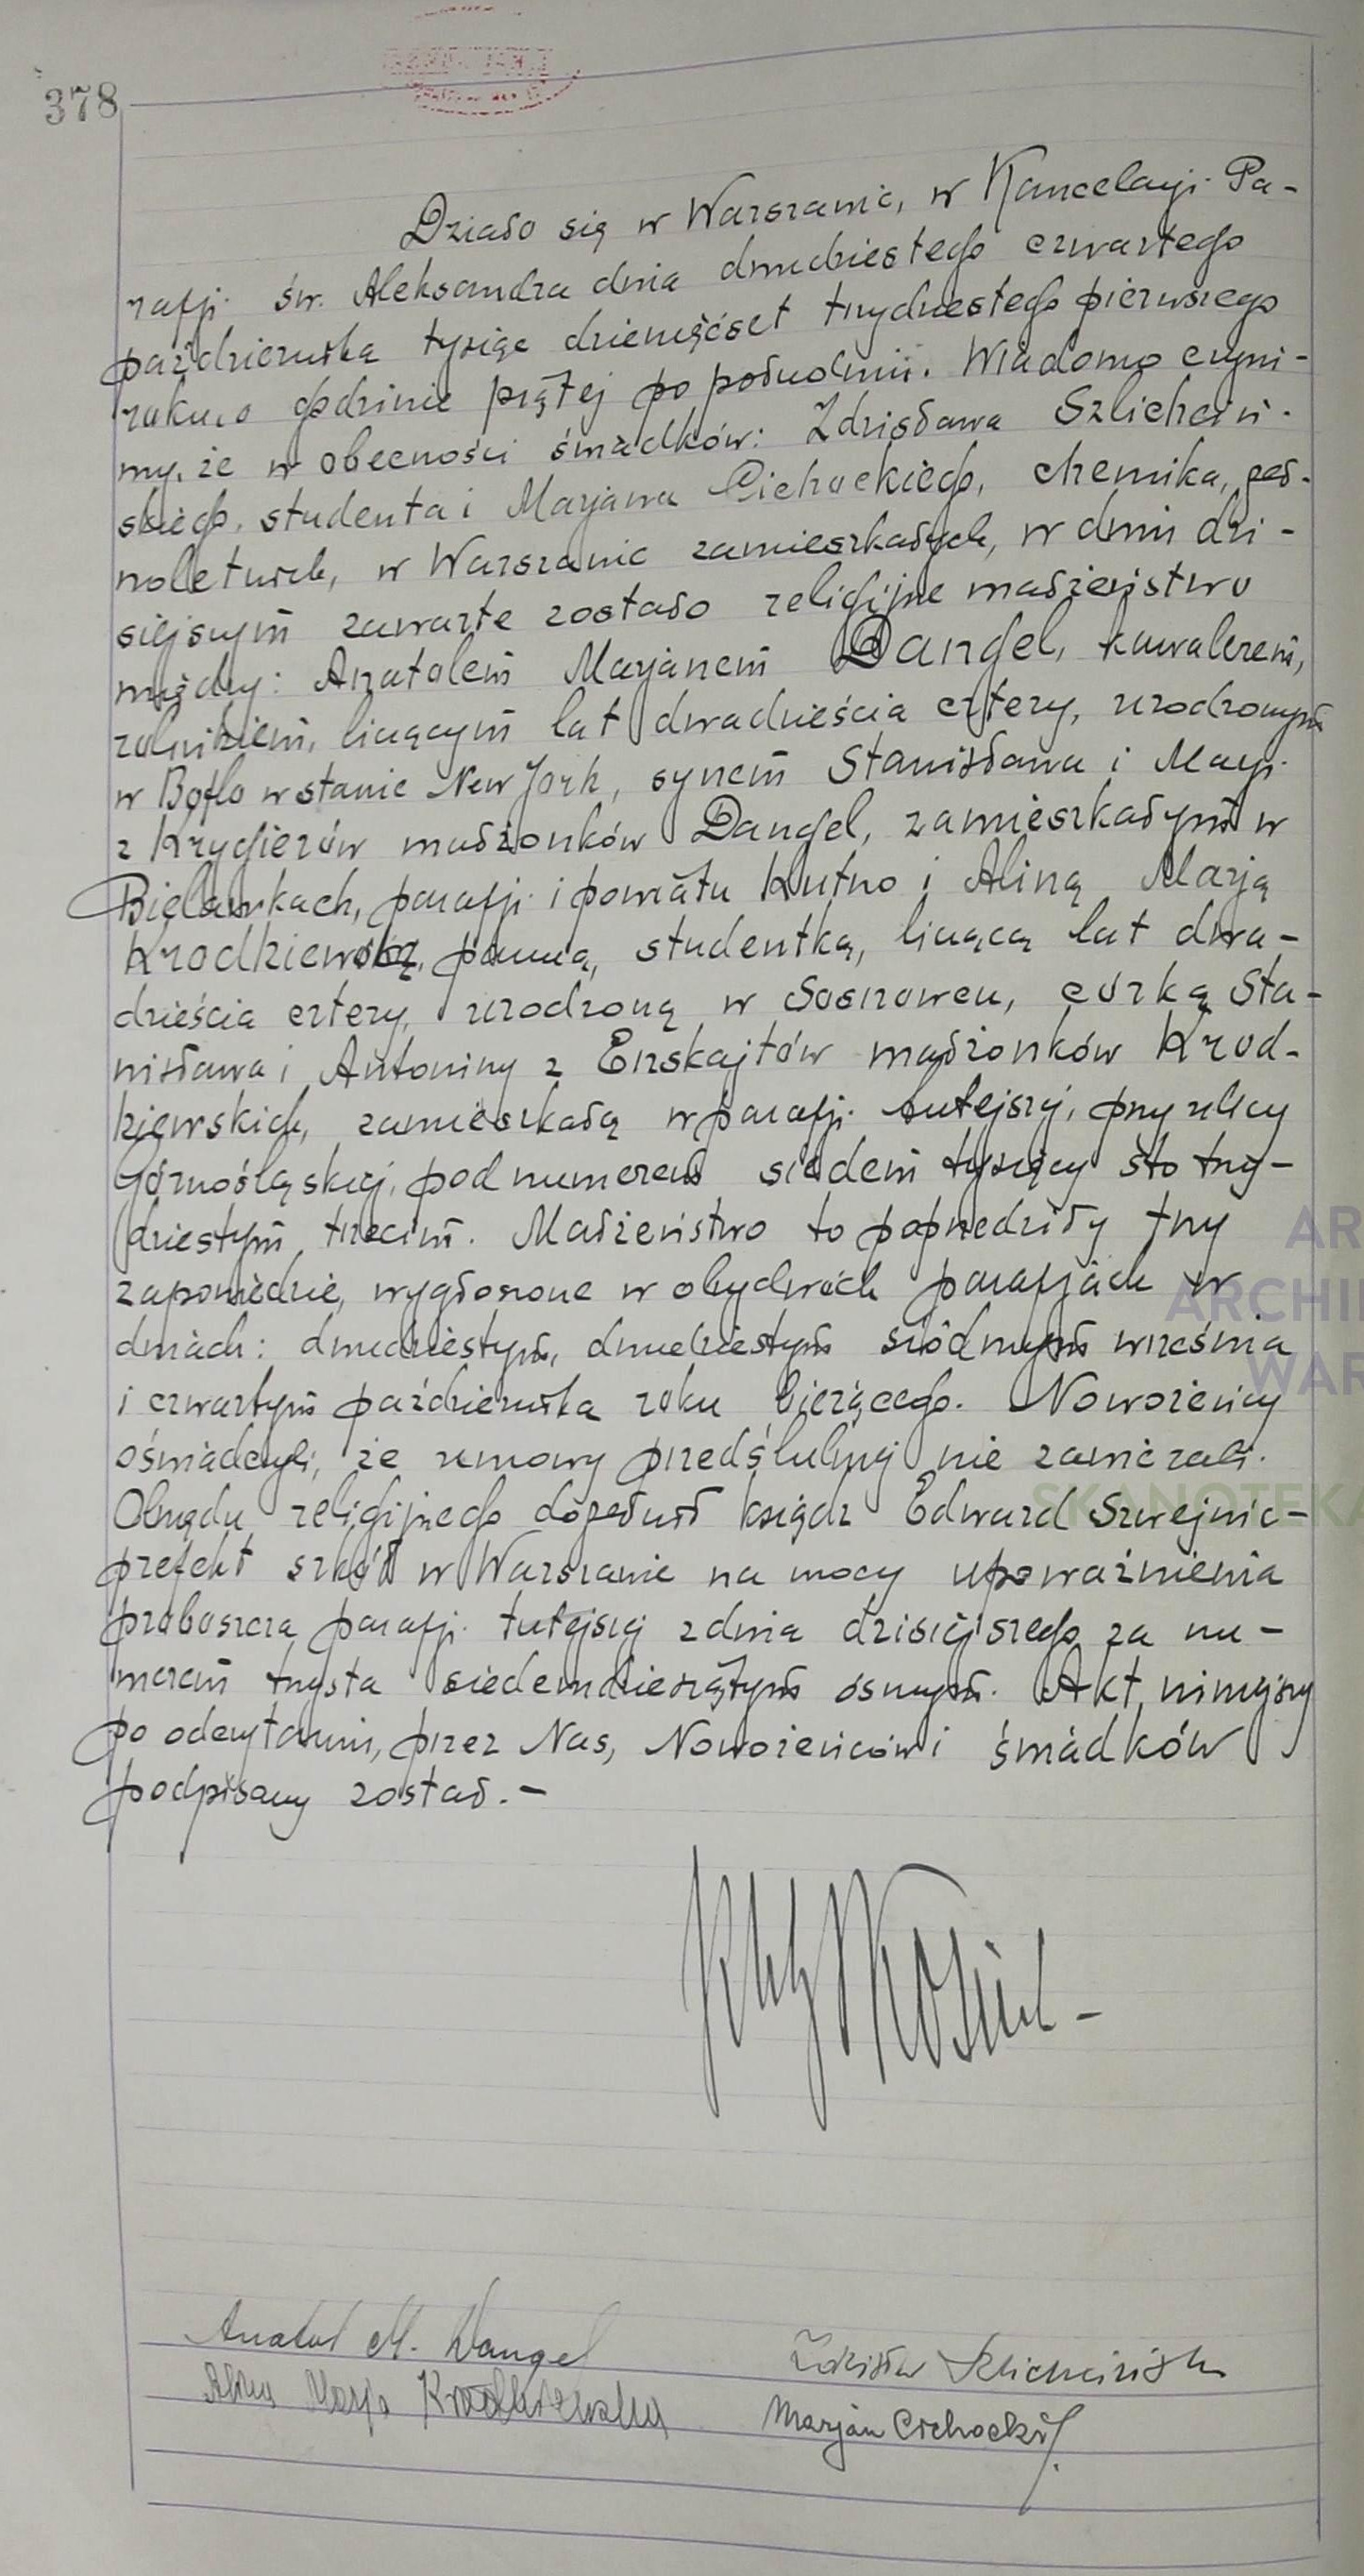 378
Działo się w Warszawie, w Kancelaryi Pa-
rafji św. Aleksandra dnia dwudziestego czwartego
października tysiąc dziewięćset trzydziestego pierwszego
roku, o godzinie piątej po południu. Wiadomo czyni-
my, że w obecności świadków: Zdzisława Szlichciń-
skiego, studenta i Marjana Cichockiego, chemika, peł-
noletnich, w Warszawie zamieszkałych, w dniu dzi-
siejszym zawarte zostało religijne małżeństwo
między: Anatolem Marjanem Dangel, kawalerem,
rolnikiem, liczącym lat dwadzieścia cztery, urodzonym
w Boflo w stanie New Jork, synem Stanisława i Maryi
z Krygierów małżonków Dangel, zamieszkałym w
Bielawkach, parafji i powiatu Kutno i Aliną Marją
Krodkiewską, panną, studentką, liczącą lat dwa-
dzieścia cztery, urodzoną w Sosnowcu, córką Sta-
nisława i Antoniny z Enskajtów małżonków Krod-
kiewskich, zamieszkałą w parafji tutejszej, przy ulicy
Górnośląskiej, pod numerem siedem tysięcy sto trzy-
dziestym trzecim. Małżeństwo to poprzedziły trzy
zapowiedzie, wygłoszone w obydwóch parafjach w
dniach: dwudziestym, dwudziestym siódmym września
i czwartym października roku bieżącego. Nowożeńcy
oświadczyli, że umowy przedślubnej nie zawierali.
Obrzędu religijnego dopełnił ksiądz Edward Szwejnic-
prefekt szkół w Warszawie na mocy upoważnienia
proboszcza parafji tutejszej z dnia dzisiejszego za nu-
merem trzysta siedemdziesiątym ósmym. Akt niniejszy
po odczytaniu, przez Nas, Nowożeńców i świadków
podpisany został.-
Anatol M. Dangel
Zdzisław Szlichciński
Alina Marja Krodkiewska
Marjan Cichocki
AR
ARCHI
WAR
SKANOTEKA